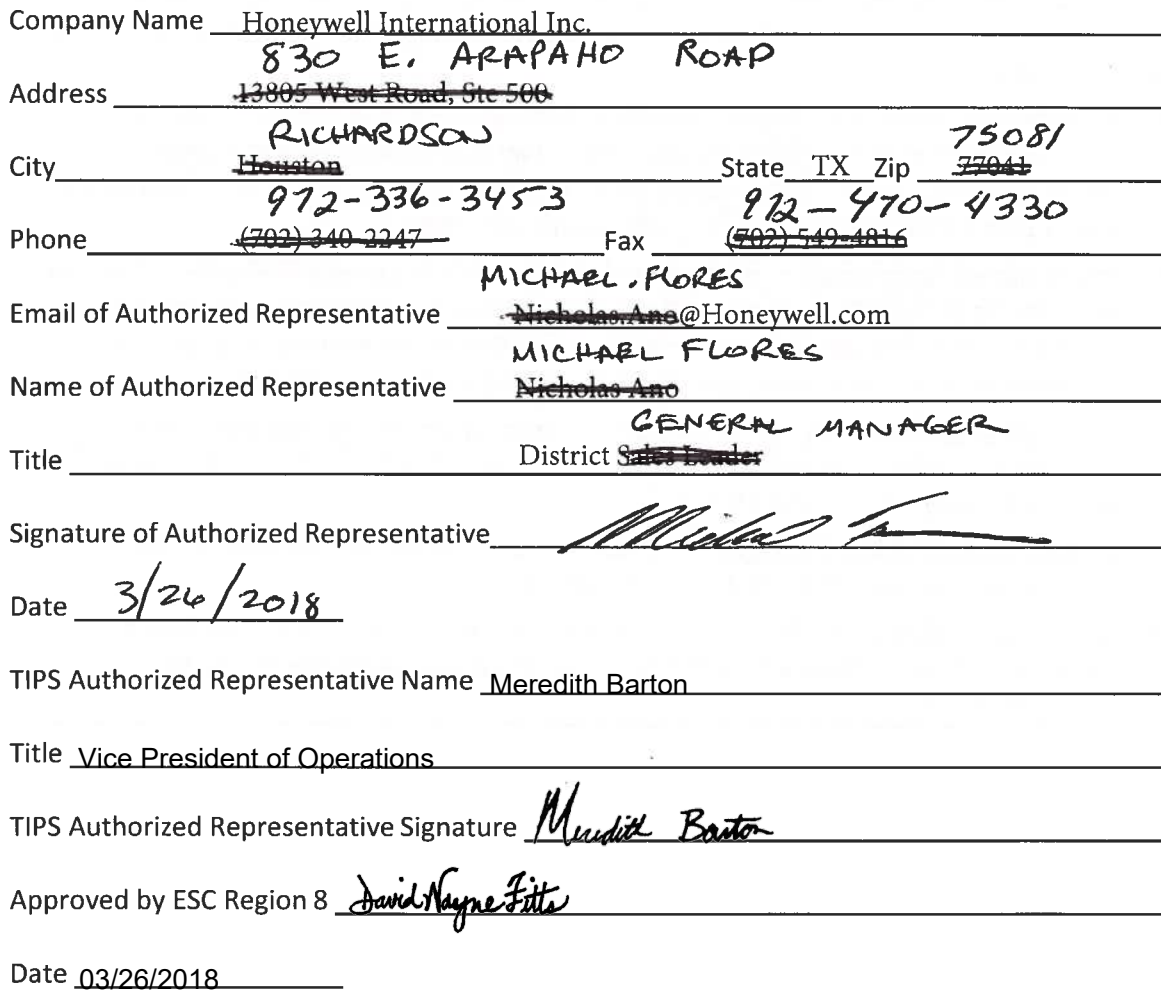 Company Name Honeywell International Inc.
830 E. ARAPAHO ROAD
Address 13805 West Road, Ste 500
RICHARDSON 75081
City Houston State TX Zip 77041
972-336-3453 972-470-4330
Phone (702) 340-2247 Fax (702) 549-4816
MICHAEL.FLORES
Email of Authorized Representative Nicholas.Ano@Honeywell.com
MICHAEL FLORES
Name of Authorized Representative Nicholas Ano
GENERAL MANAGER
Title District Sales Leader
Signature of Authorized Representative
Date 3/26/2018
TIPS Authorized Representative Name Meredith Barton
Title Vice President of Operations
TIPS Authorized Representative Signature Meredith Barton
Approved by ESC Region 8 David Wayne Fitts
Date 03/26/2018